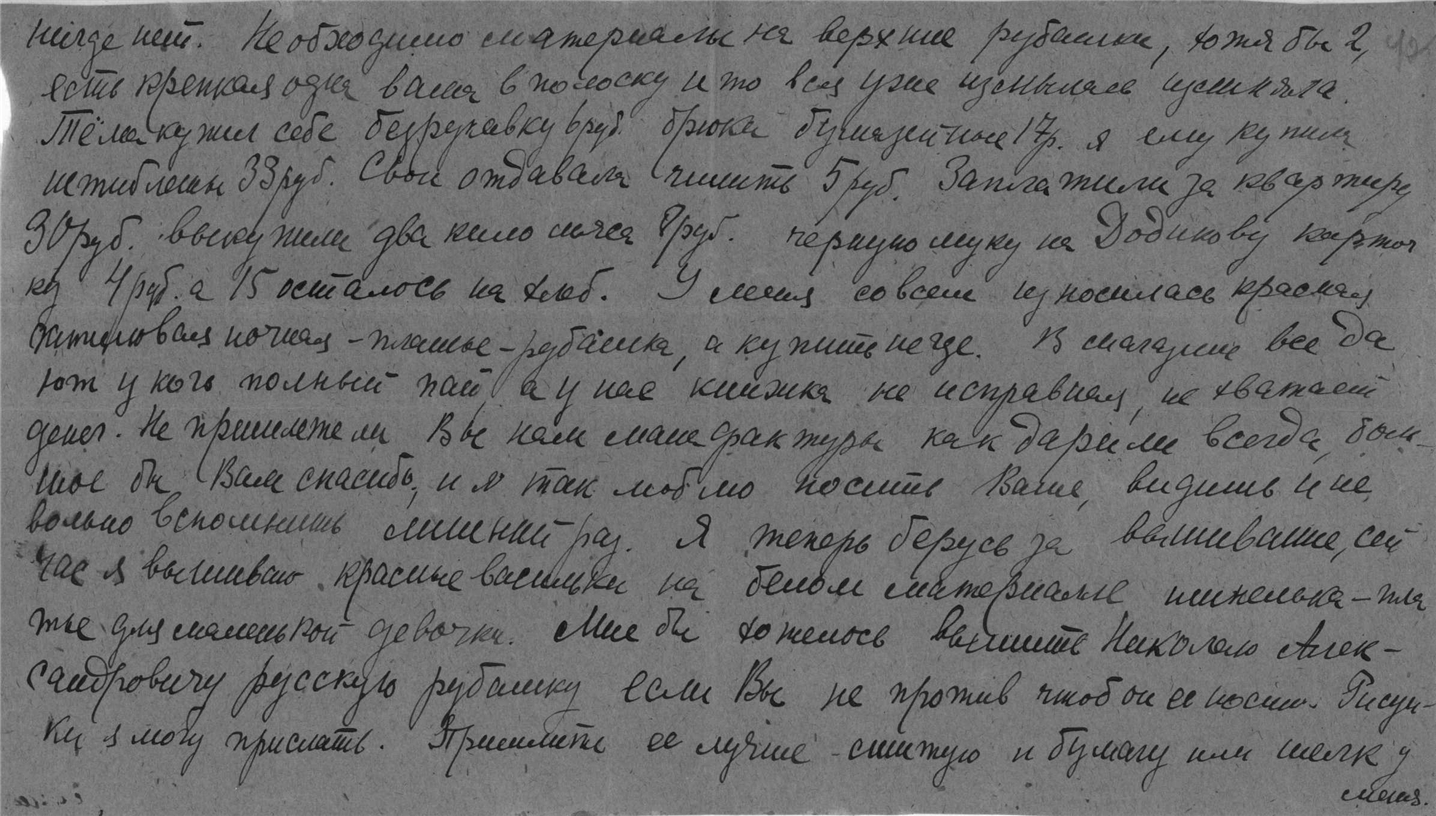 нигде нет. Необходимо материалы на верхние рубашки, хотя бы 2,
есть крепкая одна ваша в полоску и то вся уже измылась
Тёма купил себе безрукавку 6 руб. брюки бумазейные 17 р. я ему купила
штиблеты 33 руб. Свои отдавала чинить 5 руб. Заплатили за квартиру
30 руб. выкупили два кило мяса 8 руб. черную муку на Додикову карточ
ку 4 руб. а 15 осталось на хлеб. У меня совсем износилась красная
ночная - платье - рубашка, а купить негде. В магазине все да
ют у кого полный пай, а у нас книжка не исправная, не хватает
денег. Не пришлете ли Вы нам мануфактуры как дарили всегда, боль-
шое бы Вам спасибо, и я так люблю носить Ваше, видишь и не
вольно вспомнишь лишний раз. Я теперь берусь за вышивание, сей
час я вышиваю красные васильки на белом материале шинелька - пла
тье для маленькой девочки. Мне бы хотелось вышить Николаю Алек-
сандровичу русскую рубашку если Вы не против чтоб он ее носил. Рисун-
ки я могу прислать. Пришлите ее лучше сшитую и бумагу или шелк у
меня.